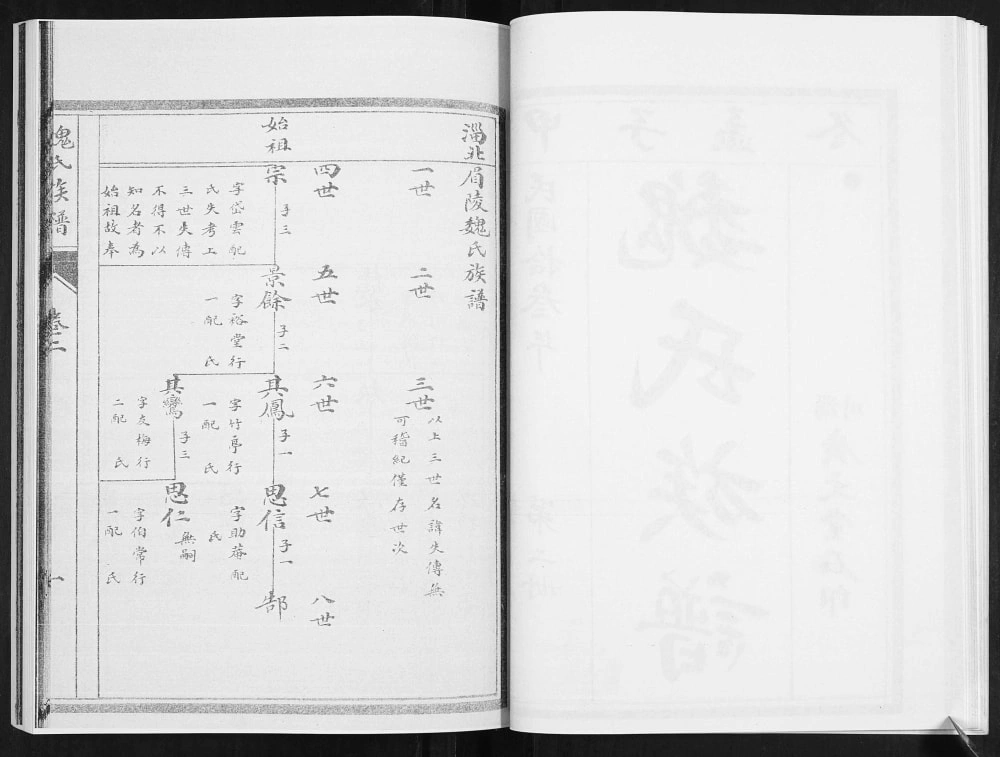 淄北眉陵魏氏族譜
一世
二世
三世
以上三世名諱失傳無
可稽紀僅存世次
四世
五世
六世
七世
八世
始祖
宗
子三
字岱雲配
氏失考上
三世失傳
不得不以
知名者為
始祖故奉
景餘
子二
字裕堂行
一配 氏
其鳳
子一
字竹亭行
一配 氏
思信
子一
字助菴配
氏
郜
其鸞
子三
字友梅行
二配 氏
思仁
無嗣
字伯常行
一配 氏
魏氏族譜
卷二
一
魏氏族譜